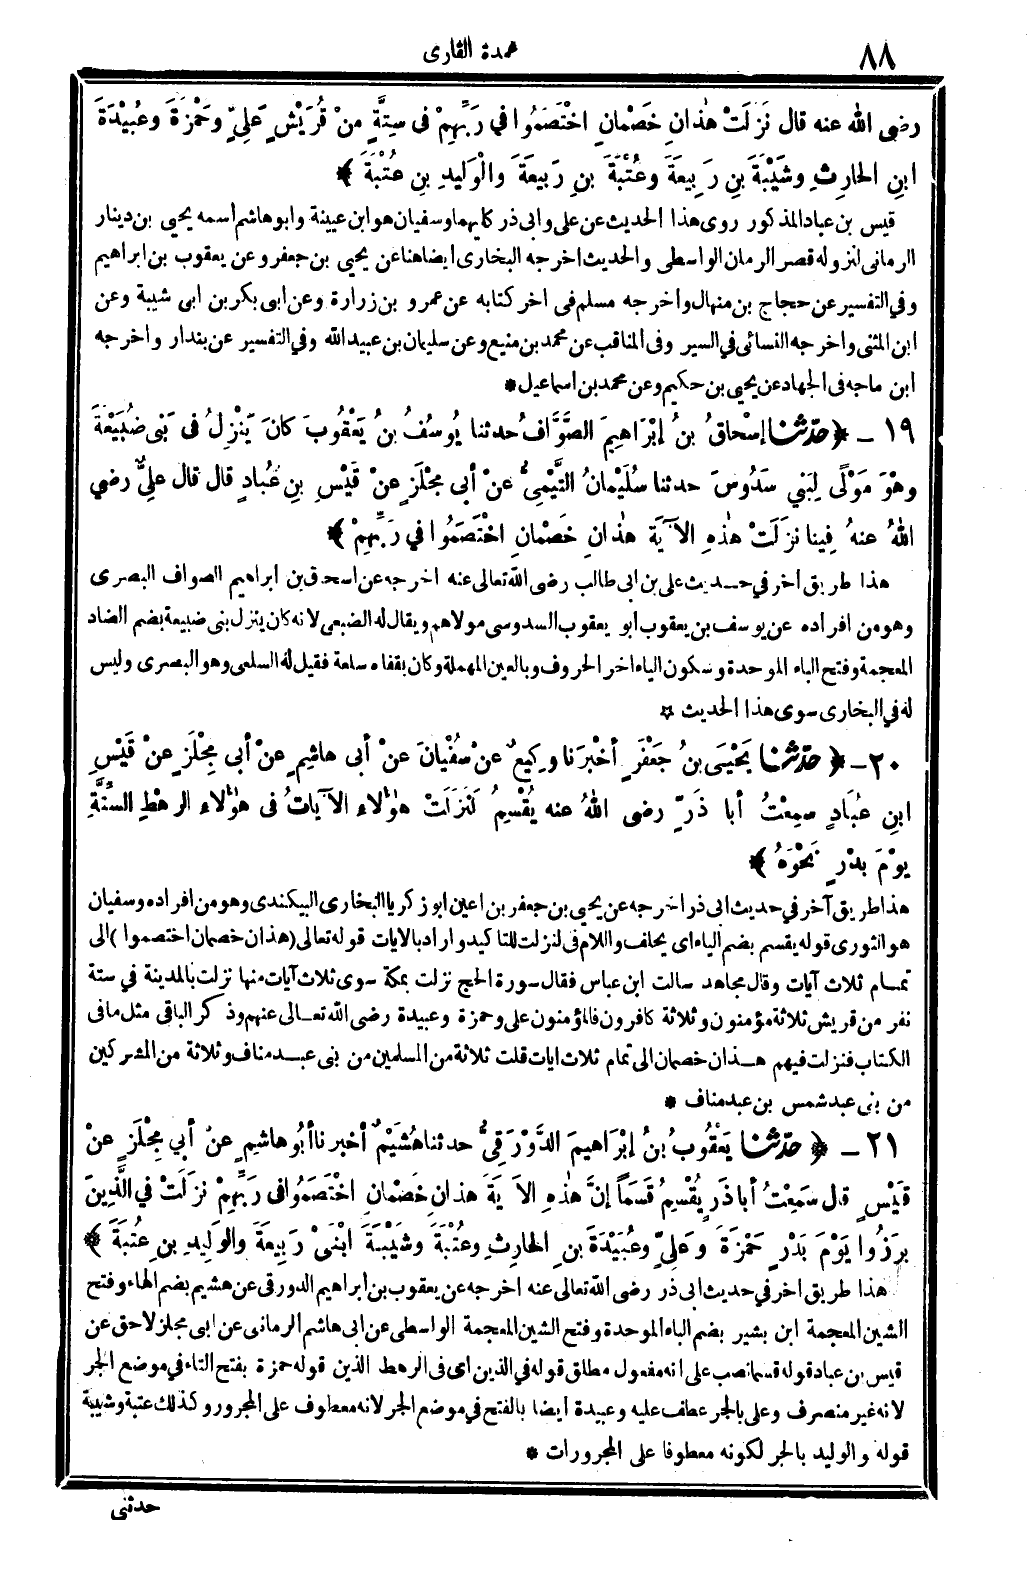 ٨٨
عمدة القارى
رضى الله عنه قال نَزَلَتْ هٰذَانِ خَصْمَانِ اخْتَصَمُوا فِي رَبِّهِمْ فى سِتَّةٍ مِنْ قُرَيْشٍ عَلِيٍّ وحَمْزَةَ وعُبَيْدَةَ
ابنِ الحَارِثِ وشَيْبَةَ بنِ رَبِيعَةَ وعُتْبَةَ بنِ رَبيعَةَ والْوَليدِ بنِ عُتْبَةَ ﴾
قيس بن عباد المذكور روى هذا الحديث عن على وابى ذر كليهما وسفيان هو ابن عيينة وابو هاشم اسمه يحيى بن دينار
الرمانى لنزوله قصر الرمان الواسطى والحديث اخرجه البخارى ايضا هنا عن يحيى بن جعفر وعن يعقوب بن ابراهيم
وفى التفسير عن حجاج بن منهال واخرجه مسلم فى اخر كتابه عن عمرو بن زرارة وعن ابى بكر بن ابى شيبة وعن
ابن المثنى واخرجه النسائى فى السير وفى المناقب عن محمد بن منيع وعن سليمان بن عبيد الله وفى التفسير عن بندار واخرجه
ابن ماجه فى الجهاد عن يحيى بن حكيم وعن محمد بن اسماعيل *
١٩ - ﴿ حدّثنا إسْحاقُ بنُ إبْرَاهِيمَ الصَّوَّافُ حدثنا يُوسُفُ بنُ يَعْقُوبَ كانَ يَنْزِلُ فى بَنى ضُبَيْعَةَ
وهْوَ مَوْلًى لِبَني سَدُوسَ حدثنا سُلَيْمانُ التَّيْمِىُّ عنْ أبى مِجْلَزٍ عنْ قَيْسِ بنِ عُبادٍ قال قال عليٌّ رضي
اللهُ عنهُ فِينا نزَلَتْ هٰذِهِ الآيَةُ هٰذَانِ خَصْمانِ اخْتَصَمُوا في رَبِّهِمْ ﴾
هذا طريق اخر فى حديث على بن ابى طالب رضى الله تعالى عنه اخرجه عن اسحق بن ابراهيم الصواف البصرى
وهو من افراده عن يوسف بن يعقوب ابو يعقوب السدوسى مولاهم ويقال له الضبعى لانه كان ينزل بنى ضبيعة بضم الضاد
المعجمة وفتح الباء الموحدة وسكون الياء اخر الحروف وبالعين المهملة وكان بقفاه سلعة فقيل له السلعى وهو البصرى وليس
له فى البخارى سوى هذا الحديث *
٢٠ - ﴿ حدّثنا يَحْيَى بنُ جَعْفَرٍ أخْبَرَنا وكِيعٌ عنْ سُفْيانَ عنْ أبى هاشِمٍ عنْ أبى مِجْلَزٍ عنْ قَيْسِ
ابنِ عُبَادٍ سمِعْتُ أبا ذَرٍّ رضى اللهُ عنه يُقْسِمُ لَنَزَلَتْ هٰؤلاءِ الآيَاتُ فى هٰؤلاءِ الرهْطِ السِّتَّةِ
يوْمَ بدْرٍ نَحْوَهُ ﴾
هذا طريق آخر فى حديث ابى ذر اخرجه عن يحيى بن جعفر بن اعين ابو زكريا البخارى البيكندى وهو من افراده وسفيان
هو الثورى قوله يقسم بضم الياء اى يحلف واللام فى لنزلت للتاكيد واراد بالايات قوله تعالى (هذان خصمان اختصموا) الى
تمام ثلاث آيات وقال مجاهد سالت ابن عباس فقال سورة الحج نزلت بمكة سوى ثلاث آيات منها نزلت بالمدينة فى ستة
نفر من قريش ثلاثة مؤمنون وثلاثة كافرون فالمؤمنون على وحمزة وعبيدة رضى الله تعالى عنهم وذكر الباقى مثل ما فى
الكتاب فنزلت فيهم هذان خصمان الى تمام ثلاث ايات قلت ثلاثة من المسلمين من بنى عبد مناف وثلاثة من المشركين
من بنى عبد شمس بن عبد مناف *
٢١ - ﴿ حدّثنا يَعْقُوبُ بنُ إبْرَاهِيمَ الدَّوْرَقِيُّ حدثنا هُشَيْمٌ أخبرنا أبُو هاشِمٍ عنْ أبي مِجْلَزٍ عنْ
قَيْسٍ قال سَمِعْتُ أبا ذَرٍ يُقْسِمُ قَسَماً إنَّ هٰذِهِ الآيَةَ هذانِ خَصْمانِ اخْتَصَمُوا فى رَبِّهِمْ نزَلَتْ في الَّذِينَ
برَزُوا يَوْمَ بَدْرٍ حَمْزَةَ وَعَلِيٍّ وعُبَيْدَةَ بنِ الحارِثِ وعُتْبَةَ وشَيْبَةَ ابْنَىْ رَبِيعَةَ والوَلِيدِ بنِ عتْبَةَ ﴾
هذا طريق اخر فى حديث ابى ذر رضى الله تعالى عنه اخرجه عن يعقوب بن ابراهيم الدورقى عن هشيم بضم الهاء وفتح
الشين المعجمة ابن بشير بضم الباء الموحدة وفتح الشين المعجمة الواسطى عن ابى هاشم الرمانى عن ابى مجلز لاحق عن
قيس بن عباد قوله قسما نصب على انه مفعول مطلق قوله فى الذين اى فى الرهط الذين قوله حمزة بفتح التاء فى موضع الجر
لانه غير منصرف وعلى بالجر عطف عليه وعبيدة ايضا بالفتح فى موضع الجر لانه معطوف على المجرور وكذلك عتبة وشيبة
قوله والوليد بالجر لكونه معطوفا على المجرورات *
حدثنى